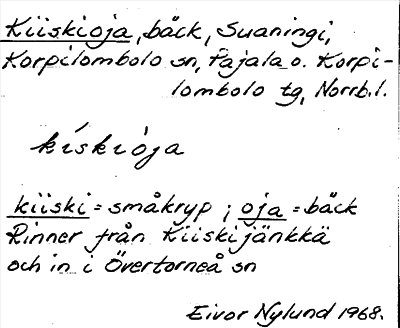 Kiiskioja, bäck, Suaningi,
Korpilombolo sn, Pajala o. Korpi-
lombolo tg, Norrb.l.
kiskiòja
kiiski = småkryp ; oja = bäck
Rinner från Kiiskijänkkä
och in i Övertorneå sn
Eivor Nylund 1968.